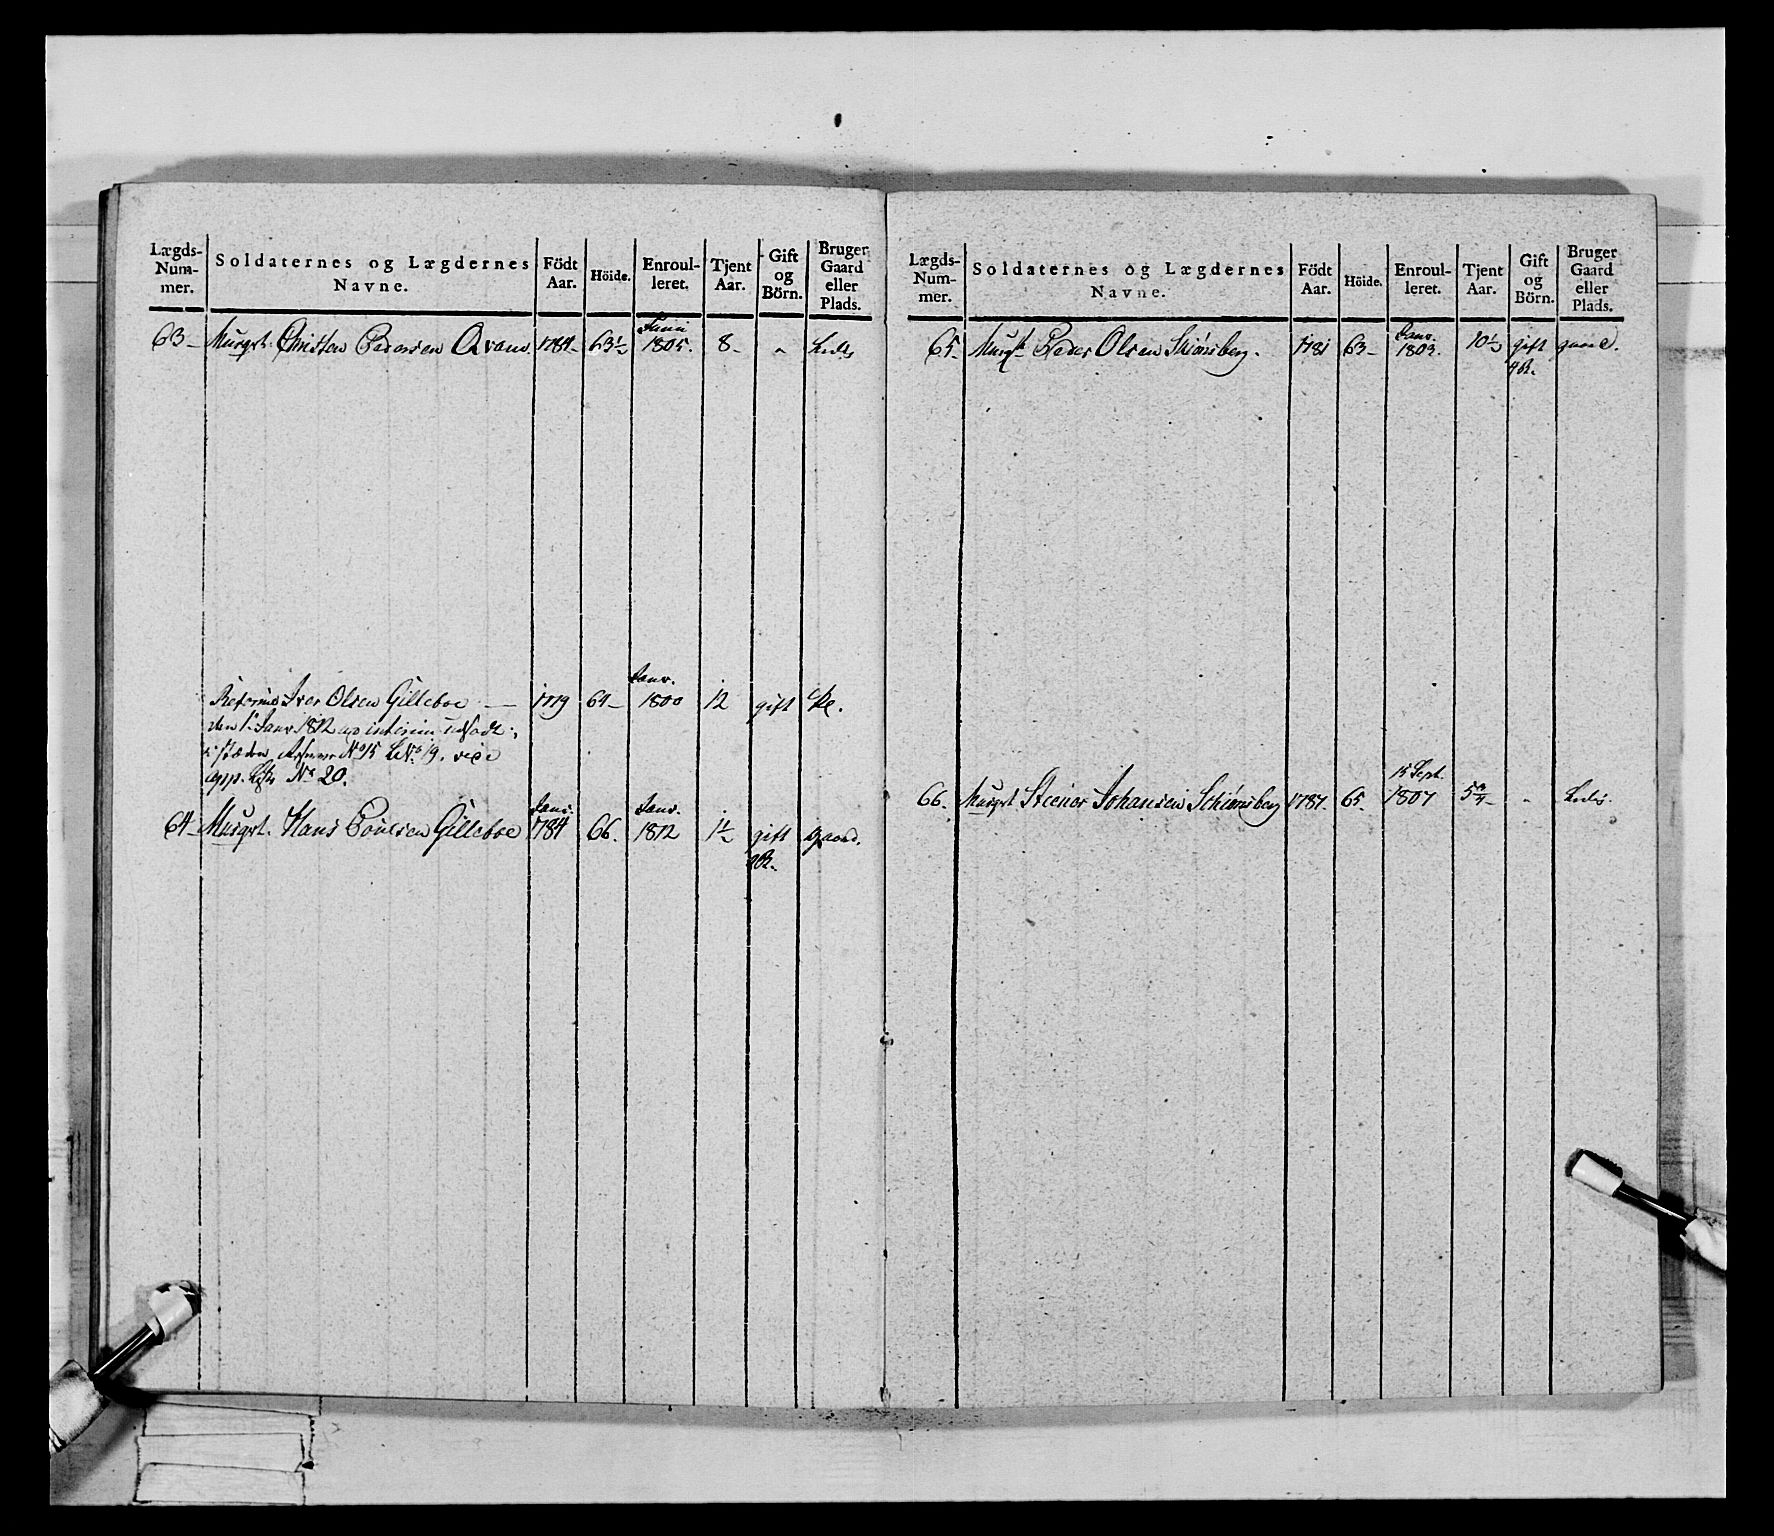 Lægds-
Num-
mer.
Soldaternes og Lægdernes
Navne.
Födt
Aar.
Höide.
Enroul-
leret.
Tjent
Aar.
Gift
og
Börn.
Bruger
Gaard
eller
Plads.
63 Musqt. Christen Pedersen Qvam 1784 63½ Junii 1805. 8 "
Iver Olsen Gilleboe 1779 64 Janv. 1800 12 gift
den 1te Janv 1812 ad interim
No 15 No 19. vice
No 20.
64 Musqt. Hans Poulsen Gilleboe 1784 66. Janv. 1812 1½ gift Gaard.
2 B.
Lægds-
Num-
mer.
Soldaternes og Lægdernes
Navne.
Födt
Aar.
Höide.
Enroul-
leret.
Tjent
Aar.
Gift
og
Börn.
Bruger
Gaard
eller
Plads.
65 Musqt Peder Olsen Skiønsberg. 1781 63 Janv. 1803. 10½ gift gaard.
4 B.
66. Musqt Steener Johansen Schiønsberg 1787. 65. 15 Sept. 1807 5¾ "